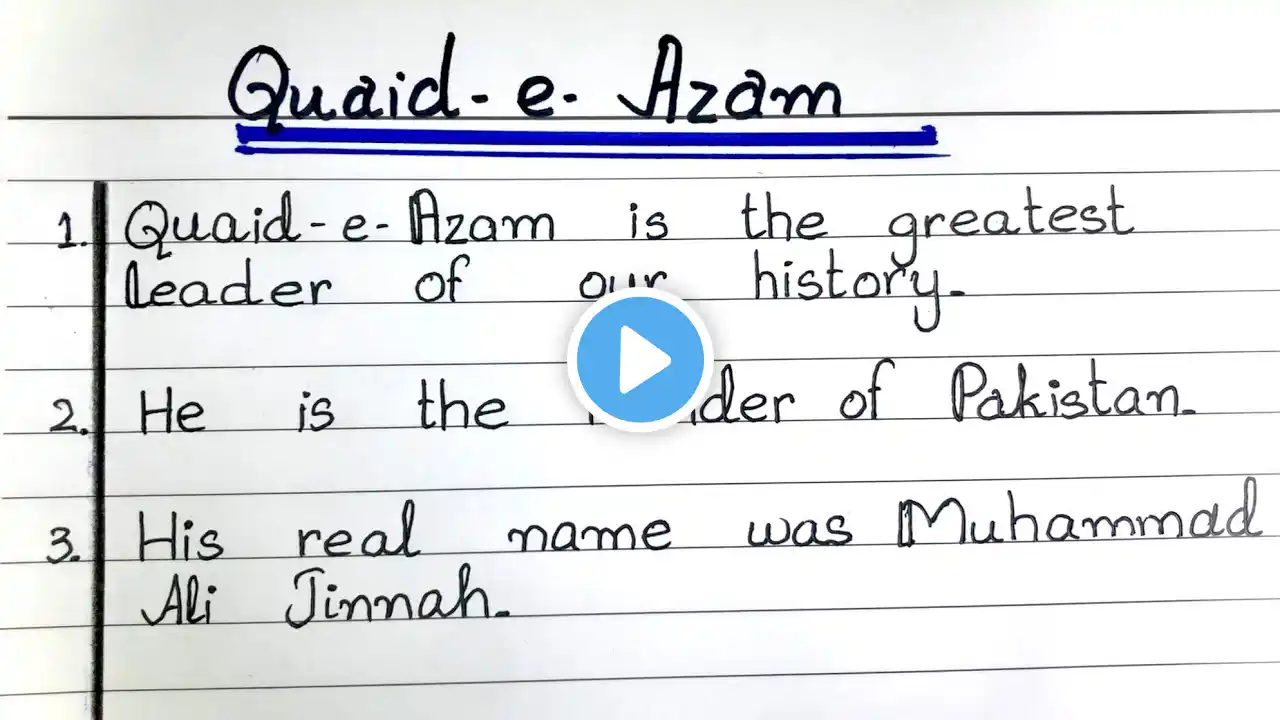 Quaid-e-Azam
1. Quaid-e-Azam is the greatest
leader of our history.
2. He is the of Pakistan.
3. His real name was Muhammad
Ali Jinnah.